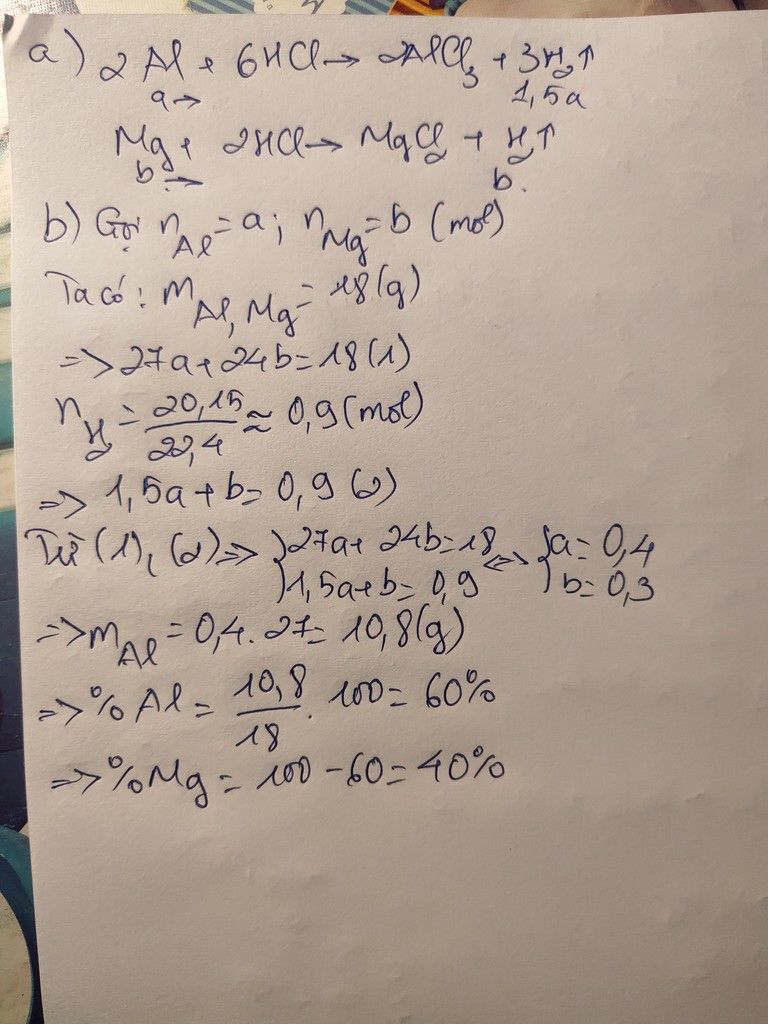 a) 2Al + 6HCl → 2AlCl₃ + 3H₂↑
a→ 1,5a
Mg + 2HCl → MgCl₂ + H₂↑
b→ b.
b) Gọi n_Al = a; n_Mg = b (mol)
Ta có: m_Al,Mg = 18(g)
=> 27a + 24b = 18 (1)
n_H₂ = 20,15/22,4 ≈ 0,9 (mol)
=> 1,5a + b = 0,9 (2)
Từ (1), (2) => {27a + 24b = 18 <=> {a = 0,4
1,5a + b = 0,9 b = 0,3
=> m_Al = 0,4 . 27 = 10,8(g)
=> % Al = 10,8/18 . 100 = 60%
=> % Mg = 100 - 60 = 40%